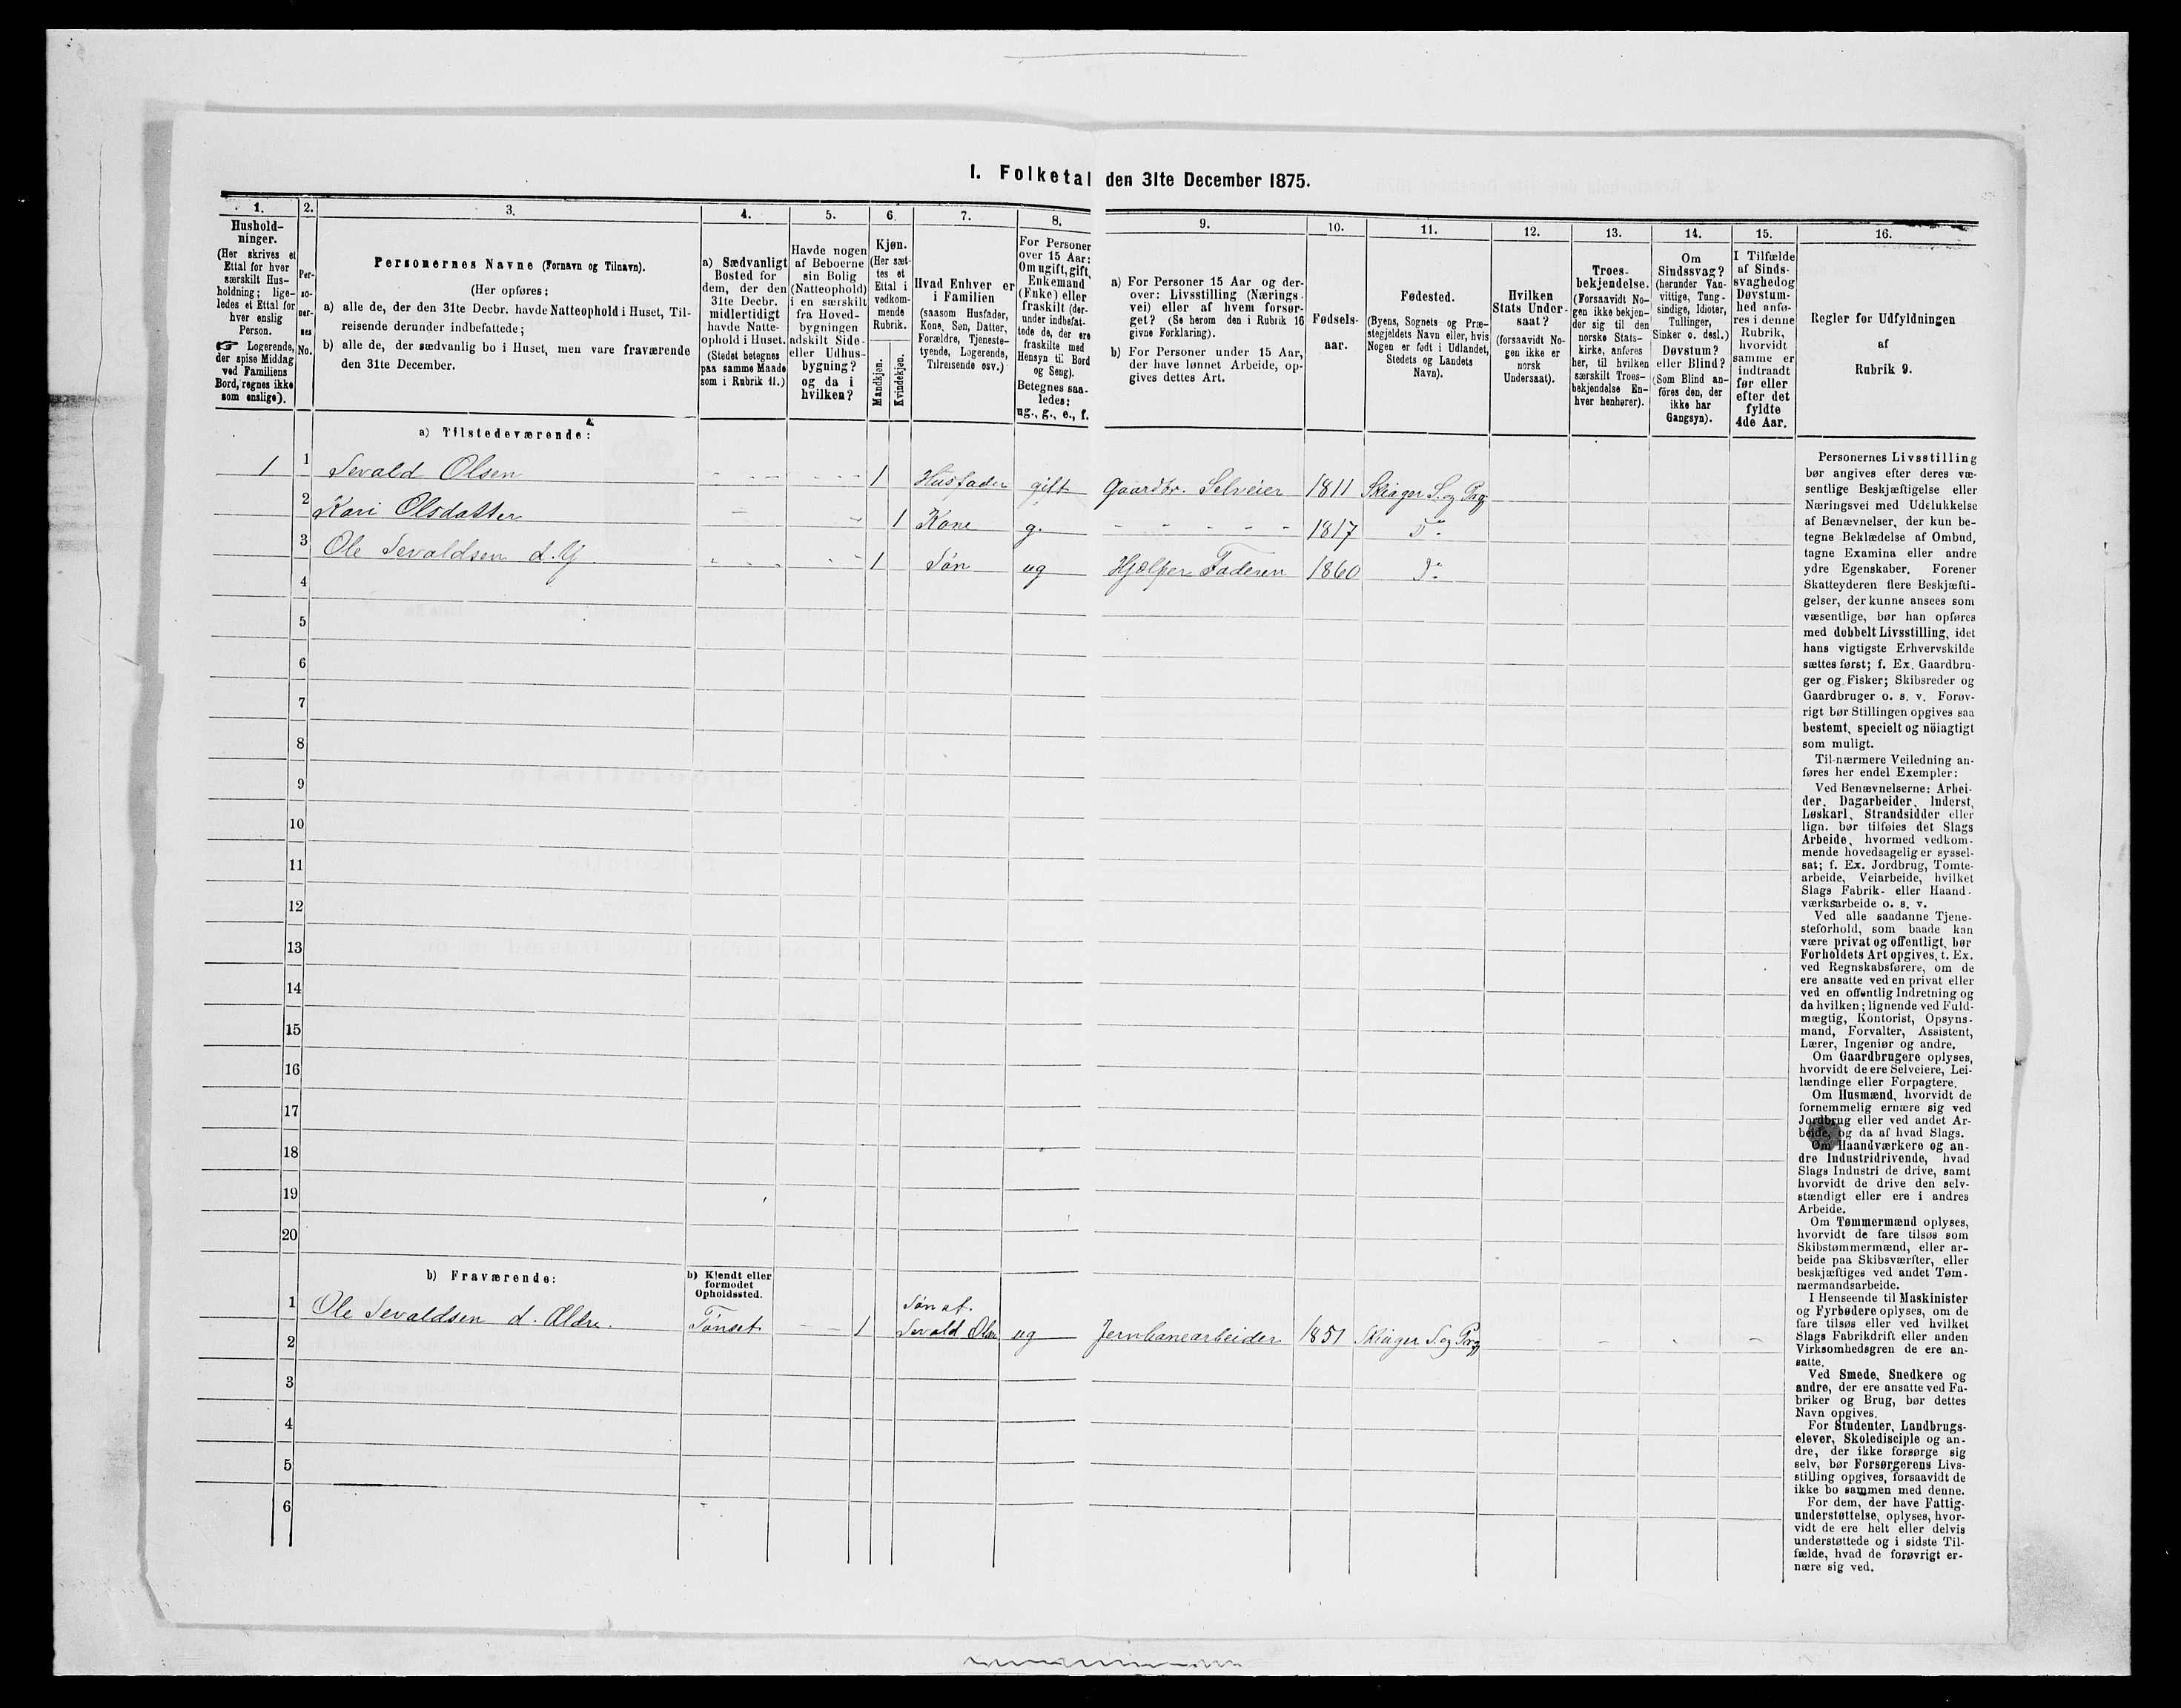 I. Folketal den 31te December 1875.
1.
Hushold-
ninger.
(Her skrives et
Ettal for hver
særskilt Hus-
holdning; lige-
ledes et Ettal for
hver enslig
Person.
☞ Logerende,
der spise Middag
ved Familiens
Bord, regnes ikke
som enslige).
2.
Per-
so-
ner-
nes
No.
3.
Personernes Navne (Fornavn og Tilnavn).
(Her opføres:
a) alle de, der den 31te Decbr. havde Natteophold i Huset, Til-
reisende derunder indbefattede;
b) alle de, der sædvanlig bo i Huset, men vare fraværende
den 31te December.
4.
a) Sædvanligt
Bosted for
dem, der den
31te Decbr.
midlertidigt
havde Natte-
ophold i Huset.
(Stedet betegnes
paa samme Maade
som i Rubrik 11.)
5.
Havde nogen
af Beboerne
sin Bolig
(Natteophold)
i en særskilt
fra Hoved-
bygningen
adskilt Side-
eller Udhus-
bygning?
og da i
hvilken?
6.
Kjøn.
(Her sæt-
tes et
Ettal i
vedkom-
mende
Rubrik.
Mandkjøn.
Kvindekjøn.
7.
Hvad Enhver er
i Familien
(saasom Husfader,
Kone, Søn, Datter,
Forældre, Tjeneste-
tyende, Logerende,
Tilreisende osv.)
8.
For Personer
over 15 Aar:
Om ugift, gift,
Enkemand
(Enke) eller
fraskilt (der-
under indbefat-
tede de, der ere
fraskilte med
Hensyn til Bord
og Seng).
Betegnes saa-
ledes:
ug., g., e., f.
9.
a) For Personer 15 Aar og der-
over: Livsstilling (Nærings-
vei) eller af hvem forsør-
get? (Se herom den i Rubrik 16
givne Forklaring).
b) For Personer under 15 Aar,
der have lønnet Arbeide, op-
gives dettes Art.
10.
Fødsels-
aar.
11.
Fødested.
(Byens, Sognets og Præ-
stegjeldets Navn eller, hvis
Nogen er født i Udlandet,
Stedets og Landets
Navn).
12.
Hvilken
Stats Under-
saat?
(forsaavidt No-
gen ikke er
norsk
Undersaat).
13.
Troes-
bekjendelse.
(Forsaavidt No-
gen ikke bekjen-
der sig til den
norske Stats-
kirke, anføres
her, til hvilken
særskilt Troes-
bekjendelse En-
hver henhører).
14.
Om
Sindssvag?
(herunder Van-
vittige, Tung-
sindige, Idioter,
Tullinger,
Sinker o. desl.)
Døvstum?
eller Blind?
(Som Blind an-
føres den, der
ikke har
Gangsyn).
15.
I Tilfælde
af Sinds-
svaghed og
Døvstum-
hed anfø-
res i denne
Rubrik,
hvorvidt
samme er
indtraadt
før eller
efter det
fyldte
4de Aar.
16.
Regler for Udfyldningen
af
Rubrik 9.
a) Tilstedeværende:
1 1 Sevald Olsen 1 Husfader gift Gaardbr. Selveier 1811 Skiager S. og Prg
2 Kari Olsdatter 1 Kone g. 1817 Do
3 Ole Sevaldsen d. Y. 1 Søn ug Hjælper Faderen 1860 Do
4
5
6
7
8
9
10
11
12
13
14
15
16
17
18
19
20
b) Fraværende:
b) Kjendt eller
formodet
Opholdssted.
1 Ole Sevaldsen d. Ældre. Tønset 1 Søn af
Sevald Olsen ug Jernbanearbeider 1851 Skiager S. og Prg
2
3
4
5
6
Personernes Livsstilling
bør angives efter deres væ-
sentlige Beskjæftigelse eller
Næringsvei med Udelukkelse
af Benævnelser, der kun be-
tegne Beklædelse af Ombud,
tagne Examina eller andre
ydre Egenskaber. Forener
Skatteyderen flere Beskjæfti-
gelser, der kunne ansees som
væsentlige, bør han opføres
med dobbelt Livsstilling, idet
hans vigtigste Erhvervskilde
sættes først; f. Ex. Gaardbru-
ger og Fisker; Skibsreder og
Gaardbruger o. s. v. Forøv-
rigt bør Stillingen opgives saa
bestemt, specielt og nöiagtigt
som muligt.
Til nærmere Veiledning an-
føres her endel Exempler:
Ved Benævnelserne: Arbei-
der, Dagarbeider, Inderst,
Løskarl, Strandsidder eller
lign. bør tilføies det Slags
Arbeide, hvormed vedkom-
mende hovedsagelig er syssel-
sat; f. Ex. Jordbrug, Tomte-
arbeide, Veiarbeide, hvilket
Slags Fabrik- eller Haand-
værksarbeide o. s. v.
Ved alle saadanne Tjene-
steforhold, som baade kan
være privat og offentligt, bør
Forholdets Art opgives, t. Ex.
ved Regnskabsførere, om de
ere ansatte ved en privat eller
ved en offentlig Indretning og
da hvilken; lignende ved Fuld-
mægtig, Kontorist, Opsyns-
mand, Forvalter, Assistent,
Lærer, Ingeniør og andre.
Om Gaardbrugere oplyses,
hvorvidt de ere Selveiere, Lei-
lændinge eller Forpagtere.
Om Husmænd, hvorvidt de
fornemmelig ernære sig ved
Jordbrug eller ved andet Ar-
beide, og da af hvad Slags.
Om Haandværkere og an-
dre Industridrivende, hvad
Slags Industri de drive, samt
hvorvidt de drive den selv-
stændigt eller ere i andres
Arbeide.
Om Tømmermænd oplyses,
hvorvidt de fare tilsøs som
Skibstømmermænd, eller ar-
beide paa Skibsværfter, eller
beskjæftiges ved andet Tøm-
mermandsarbeide.
I Henseende til Maskinister
og Fyrbødere oplyses, om de
fare tilsøs eller ved hvilket
Slags Fabrikdrift eller anden
Virksomhedsgren de ere an-
satte.
Ved Smede, Snedkere og
andre, der ere ansatte ved Fa-
briker og Brug, bør dettes
Navn opgives.
For Studenter, Landbrugs-
elever, Skoledisciple og an-
dre, der ikke forsørge sig
selv, bør Forsørgerens Livs-
stilling opgives, forsaavidt de
ikke bo sammen med denne.
For dem, der have Fattig-
understøttelse, oplyses, hvor-
vidt de ere helt eller delvis
understøttede og i sidste Til-
fælde, hvad de forøvrigt er-
nære sig ved.